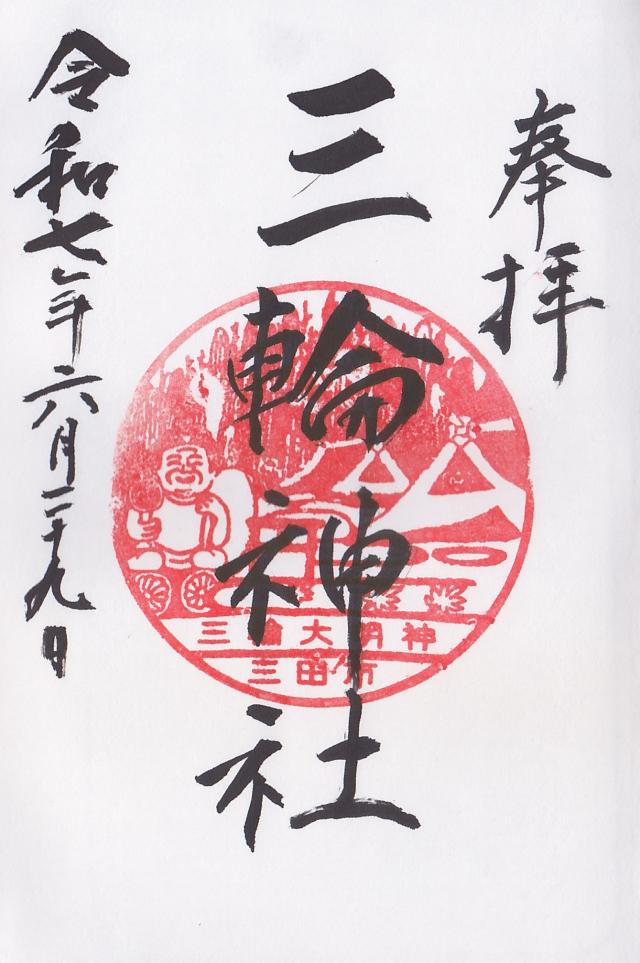 奉拝
三輪神社
三輪大明神
三田市
令和七年六月二十九日